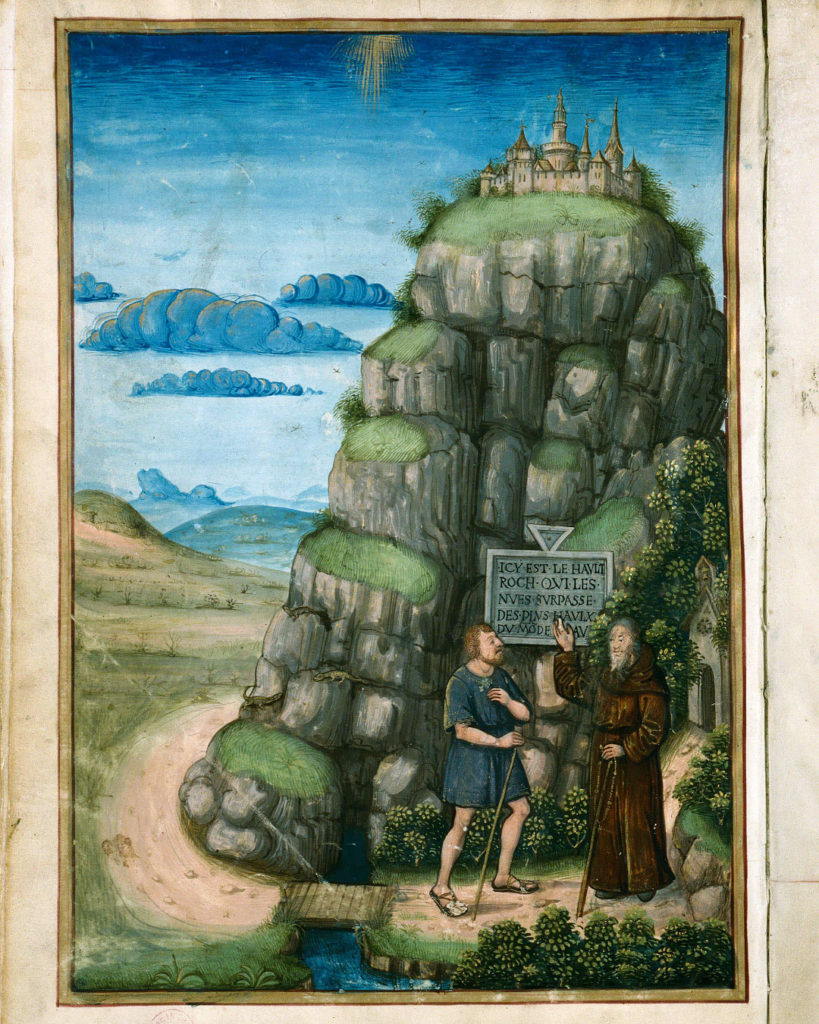 ICY·EST·LE HAVLT
ROCH·QVI·LES·
NVES·SVRPASSE·
DES·PLVS·HAVLX·
DV·MÕDE